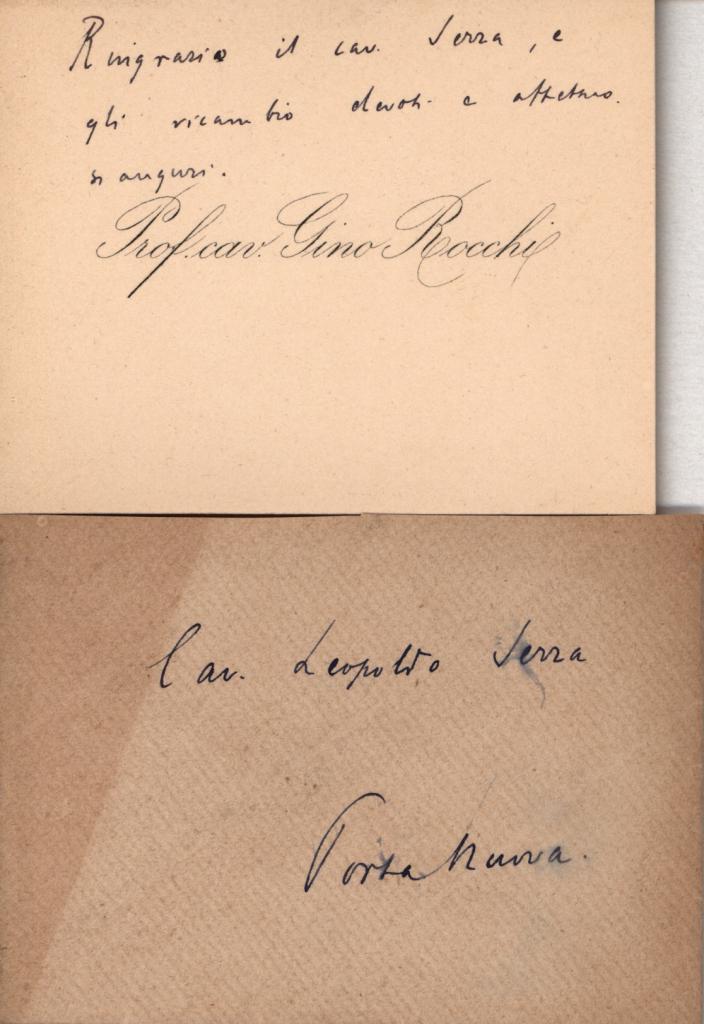 Ringrazio il cav. Serra, e
gli ricambio devoti e affettuo
si auguri.
Prof. cav. Gino Rocchi
Cav. Leopoldo Serra
Porta Nuova.